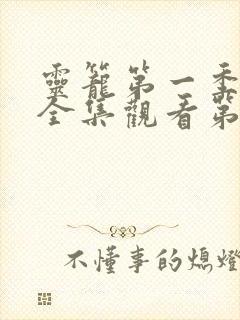 靈籠第一季
全集觀看第
不懂事的熄燈